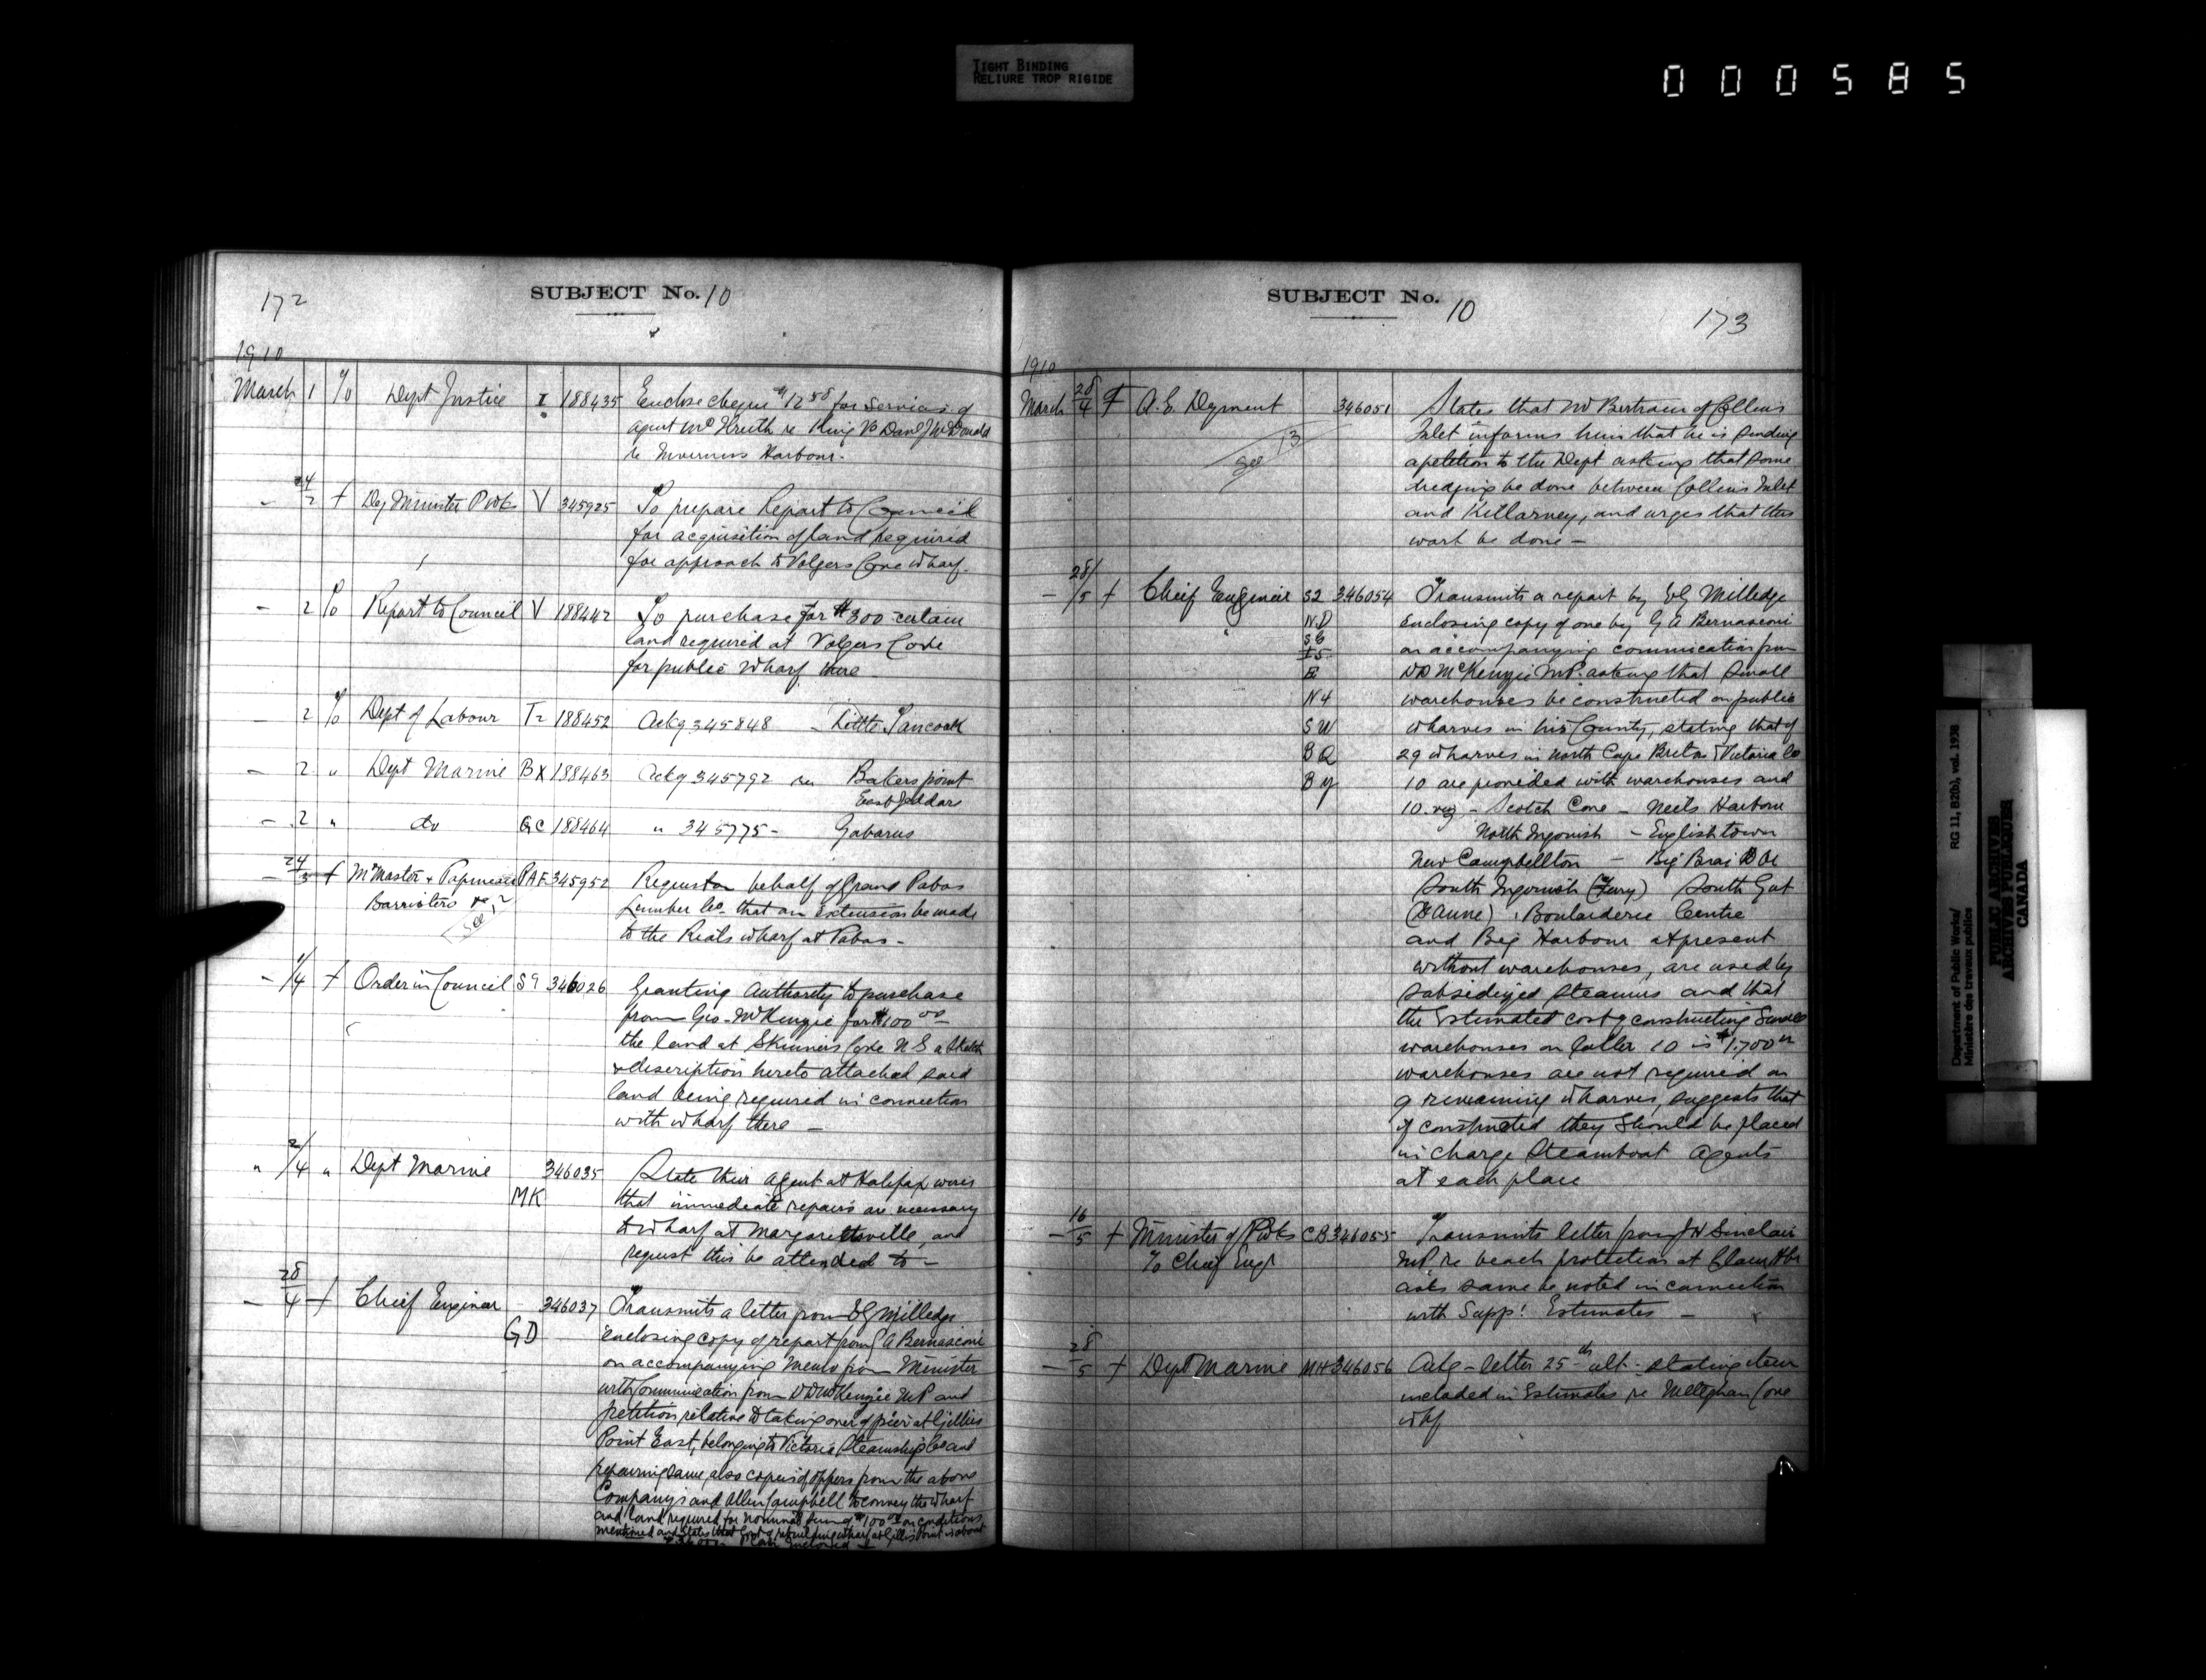 TIGHT BINDING
RELIURE TROP RIGIDE
000585
172
SUBJECT No. 10
1910
March 1 % Dept Justice I 188435 Enclose cheque $12 50 for services of
agent re King vs Danl J McDonald
re Inverness Harbour.
- 24/2 + Dep Minister P Wks V 345925 To prepare Report to Council
for acquisition of land required
for approach to Volgers Cove wharf.
- 2 % Report to Council V 188442 To purchase for $300 certain
land required at Volgers Cove
for public wharf there
- 2 % Dept of Labour T2 188452 Ackg 345848 - Little Tancook
- 2 " Dept Marine BX 188463 Ackg 345792 re Bakers point
East Jeddore
- 2 " do GC 188464 " 345775 - Gabarus
- 24/3 + McMaster & Papineau PAF 345952 Request on behalf of Grand Pabos
Barristers
See
Lumber Co. that an extension be made
to the wharf at Pabos -
- 1/4 + Order in Council S9 346026 Granting authority to purchase
from Geo. McKenzie for $100 00
the land at Skinners Cove N S a sketch
& description hereto attached said
land being required in connection
with wharf there -
" 2/4 " Dept Marine 346035 State their agent at Halifax wires
MK
that immediate repairs are necessary
to wharf at Margaretsville, and
request this be attended to -
- 28/4 + Chief Engineer - 346037 Transmits a letter from E G Milledge
GD
enclosing copy of report from G A Bernasconi
on accompanying Memo from Minister
with Communication from D D McKenzie MP and
petition relative to taking over of pier at Gillies
Point East, belonging to Victoria Steamship Co and
repairing same also copies of offers from the above
Company and Allen Campbell to convey the wharf
and land required for nominal sum of $100 00 on conditions
mentioned and states that Cost of rebuilding wharf at Gillis Point is about
Plan enclosed
SUBJECT No. 10
173
1910
March 28/4 + A. E. Dyment 346051 States that Mr Bertram of Collins
Inlet informs him that he is sending
a petition to the Dept asking that some
See 13
dredging be done between Collins Inlet
and Killarney, and urges that this
work be done -
- 28/5 + Chief Engineer S2 346054 Transmits a report by E G Milledge
N.D enclosing copy of one by G A Bernasconi
S6
I5 on accompanying communication from
E D D McKenzie M P. asking that small
N4 warehouses be constructed on public
SW wharves in his County, stating that of
BQ 29 wharves in North Cape Breton & Victoria Co
By 10 are provided with warehouses and
10. viz - Scotch Cove - Neils Harbour
North Ingonish - Englishtown
New Campbellton - Big Bras D Or
South Ingonish (Ferry) South Gut
(St Anne) , Boularderie Centre
and Big Harbour at present
without warehouses, are used by
subsidized steamers and that
the Estimated cost of constructing small
warehouses on latter 10 is $1,700 00
warehouses are not required on
9 remaining wharves, suggests that
if constructed they should be placed
in charge Steamboat agents
at each place
- 16/5 + Minister of P Wks CB 346055 Transmits letter from J H Sinclair
To Chief Engr
MP. re beach protection at Clam Hbr
asks same be noted in connection
with Suppl Estimates -
- 28/5 + Dept Marine MH 346056 Ackg - letter 25th ult. stating item
included in Estimates re Meteghan Cove
whf
Department of Public Works/ RG 11, B2(b), vol. 1938
Ministère des travaux publics
PUBLIC ARCHIVES
ARCHIVES PUBLIQUES
CANADA